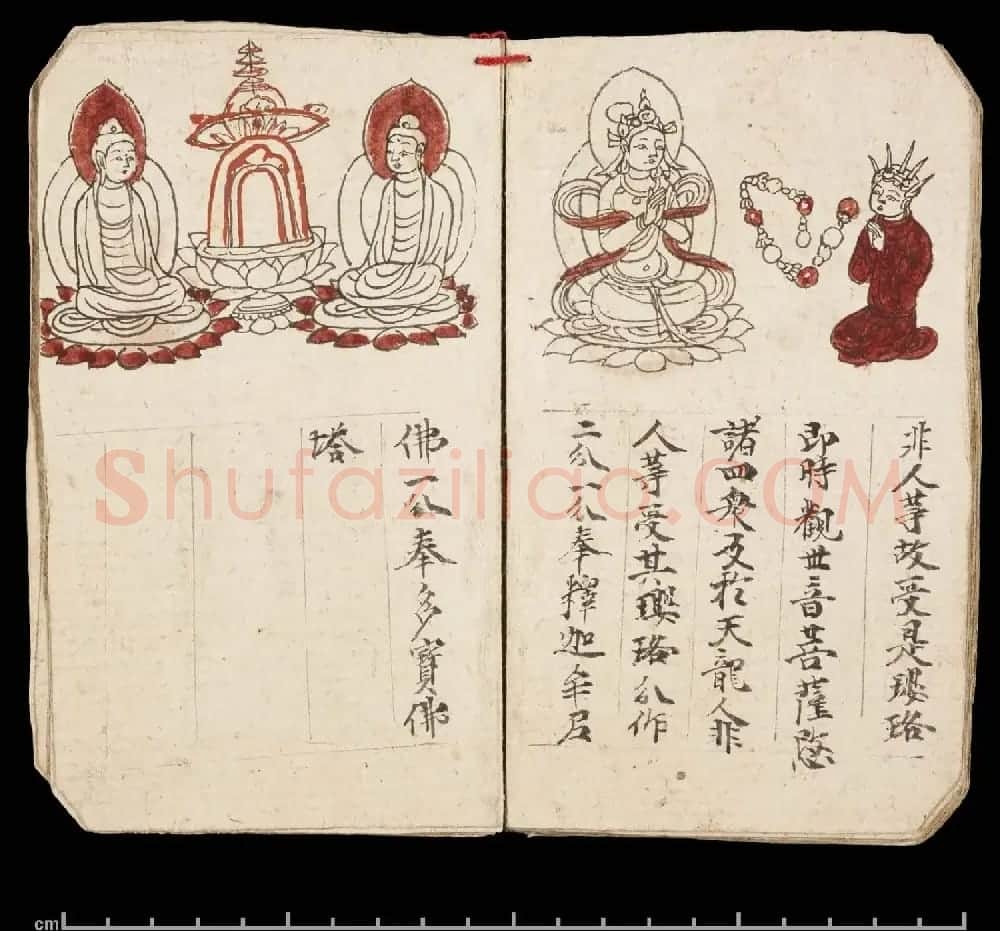 非人等故受是瓔珞
即時觀世音菩薩愍
諸四衆及於天龍人非
人等受其瓔珞分作
二分一分奉釋迦牟尼
佛一分奉多寶佛
塔
Shufaziliao.COM
cm